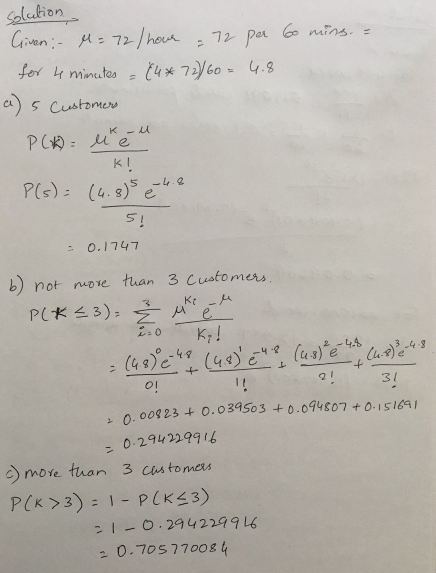 Solution
Given:- μ = 72/hour = 72 per 60 mins. =
for 4 minutes = (4*72)/60 = 4.8
a) 5 Customers
P(k) = μ^k e^-μ / k!
P(5) = (4.8)^5 e^-4.8 / 5!
= 0.1747
b) not more than 3 customers.
P(k ≤ 3) = Σ_{i=0}^{3} μ^{Ki} e^-μ / Ki!
= (4.8)^0 e^-4.8 / 0! + (4.8)^1 e^-4.8 / 1! + (4.8)^2 e^-4.8 / 2! + (4.8)^3 e^-4.8 / 3!
= 0.00823 + 0.039503 + 0.094807 + 0.151691
= 0.294229916
c) more than 3 customers
P(K > 3) = 1 - P(K ≤ 3)
= 1 - 0.294229916
= 0.705770084